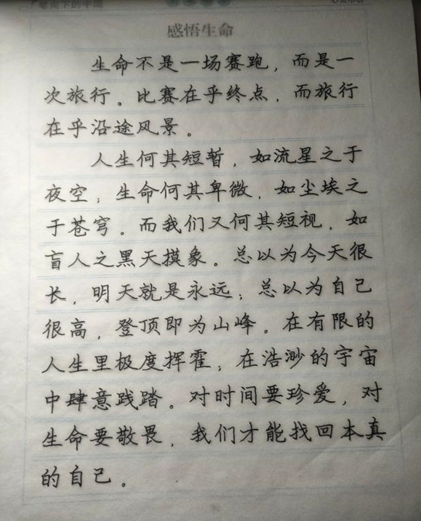 感悟生命
生命不是一场赛跑，而是一
次旅行。比赛在乎终点，而旅行
在乎沿途风景。
人生何其短暂，如流星之于
夜空，生命何其卑微，如尘埃之
于苍穹。而我们又何其短视，如
盲人之黑天摸象。总以为今天很
长，明天就是永远；总以为自己
很高，登顶即为山峰。在有限的
人生里极度挥霍，在浩渺的宇宙
中肆意践踏。对时间要珍爱，对
生命要敬畏，我们才能找回本真
的自己。